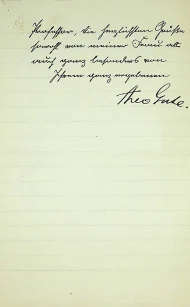 Professor, die herzlichsten Grüße
sowohl von meiner Frau als
auch ganz besonders von
Ihrem ganz ergebenen
Theo